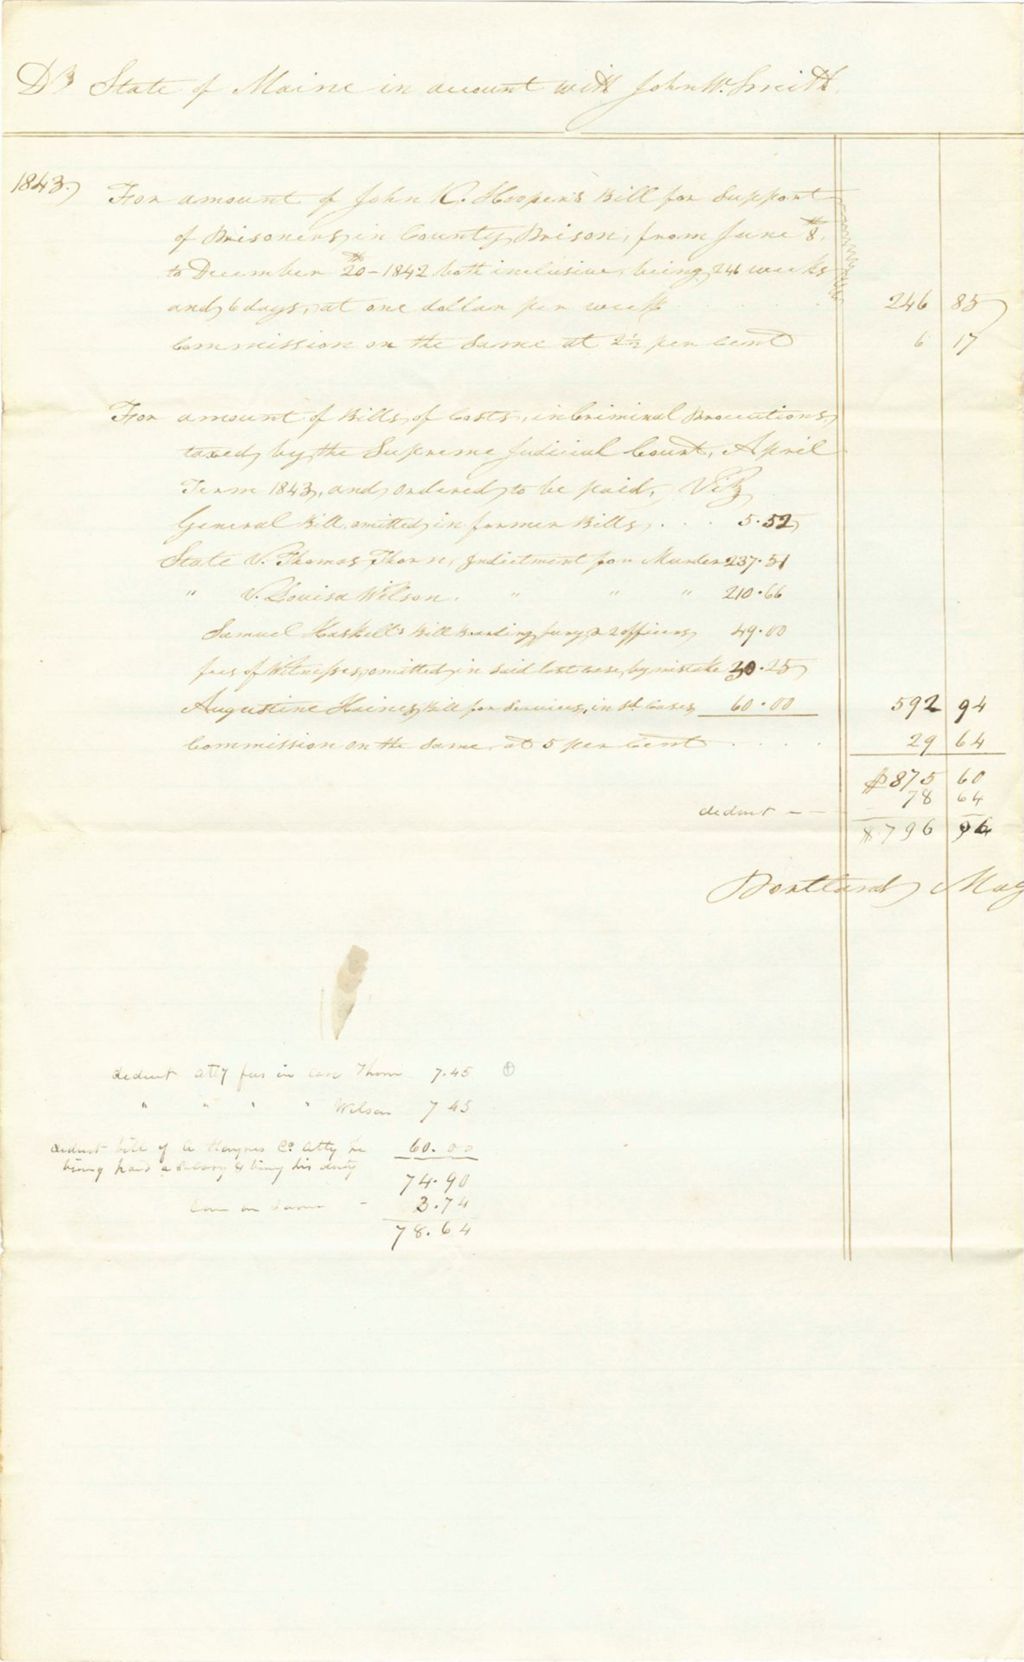 Dr State of Maine in account with John W. Smith.
1843. For amount of John K. Hooper's Bill for Support
of Prisoners, in County Prison, from June 8th,
to December 20th - 1842 both inclusive, being 246 weeks
and 6 days, at one dollar per week 246 85
Commission on the Same at 2½ per Cent 6 17
For amount of Bills, of Costs, in Criminal Prosecutions
taxed, by the Supreme Judicial Court, April
Term 1843, and ordered to be paid, Viz
General Bill omitted, in former Bills, . . . 5.52
State V. Thomas Thorn, Indictment for Murder 237.51
" V. Louisa Wilson. " " " 210.66
Samuel Haskell's Bill Boarding jury & 2 officers 49.00
fees of Witnesses, omitted, in said last case, by mistake 30.25
Augustine Haines, Bill for Services, in sd. Cases 60.00 592 94
Commission on the Same, at 5 per Cent . . . . 29 64
$875 60
deduct — — 78 64
$796 96
Portland, May
deduct atty fees in case Thorn 7.45
" " " " Wilson 7 45
deduct bill of A Haynes Co. atty he 60.00
being paid a salary & being his duty
74.90
Com on Same - 3.74
78.64